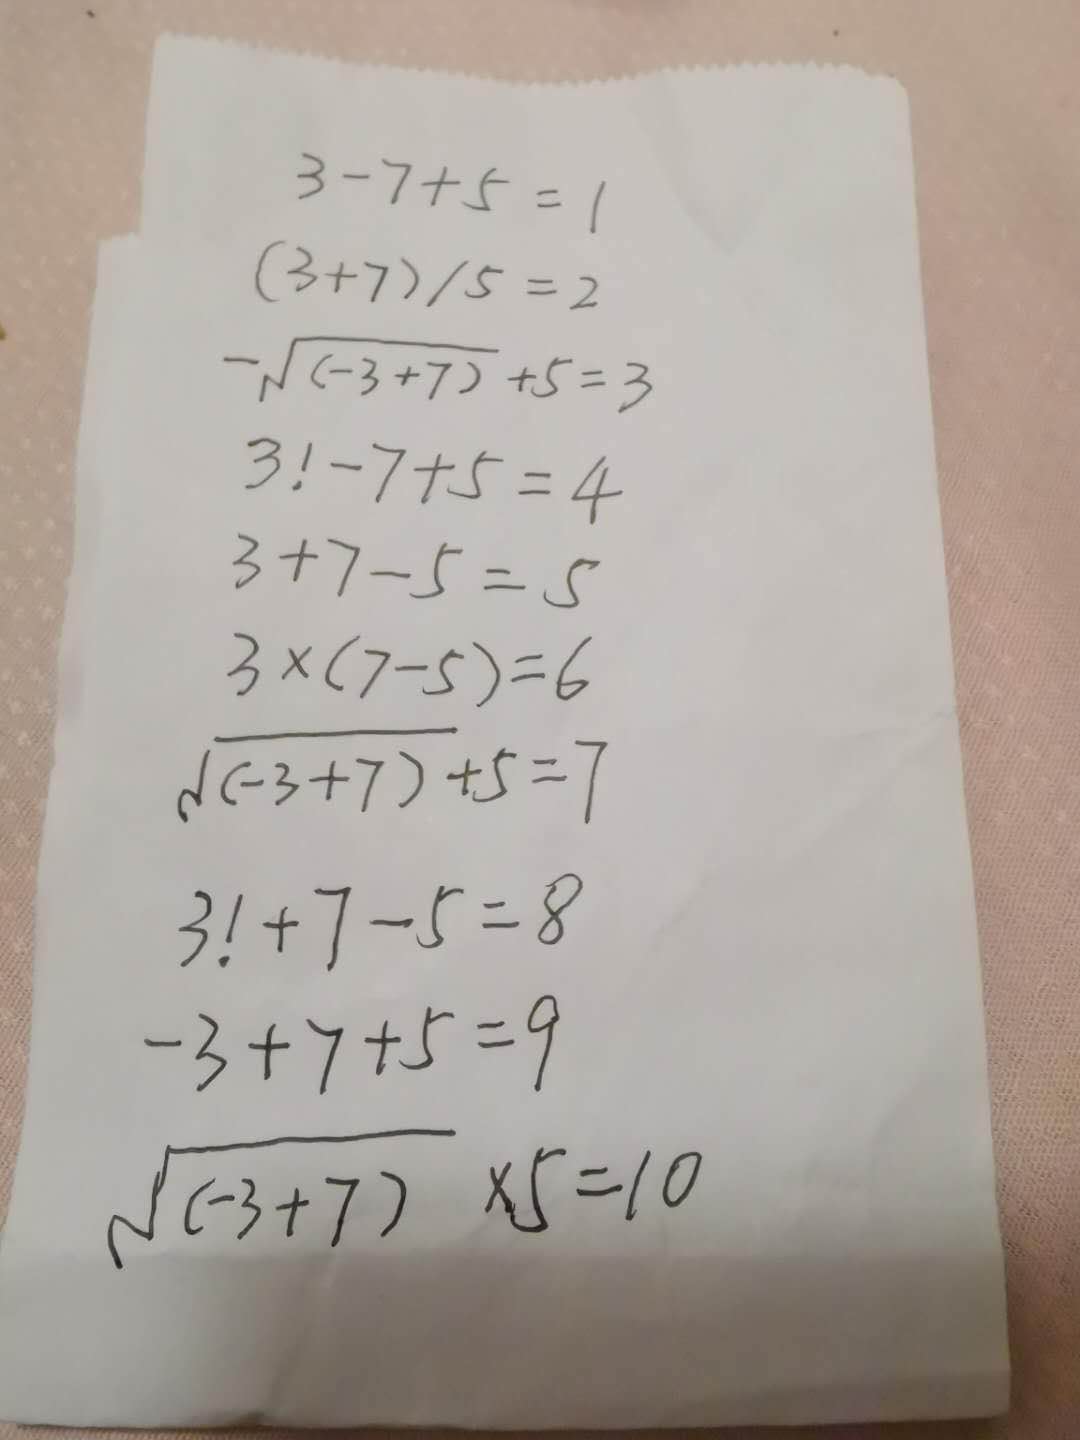 3-7+5=1
(3+7)/5=2
-√(-3+7)+5=3
3!-7+5=4
3+7-5=5
3×(7-5)=6
√(-3+7)+5=7
3!+7-5=8
-3+7+5=9
√(-3+7)×5=10